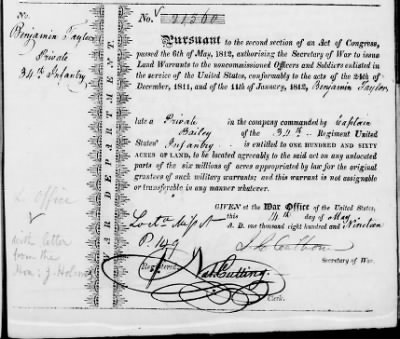 No.
Benjamin Taylor
Private
34th Infantry
L. Office
with letter
from the
Hon: J. Holmes
WAR DEPARTMENT.
No.
Pursuant to the second section of an Act of Congress,
passed the 6th of May, 1812, authorising the Secretary of War to issue
Land Warrants to the noncommissioned Officers and Soldiers enlisted in
the service of the United States, conformably to the acts of the 24th of
December, 1811, and of the 11th of January, 1812, Benjamin Taylor,
late a Private in the company commanded by Captain
Bailey of the 34th Regiment United
States' Infantry is entitled to ONE HUNDRED AND SIXTY
ACRES OF LAND, to be located agreeably to the said act on any unlocated
parts of the six millions of acres appropriated by law for the original
grantees of such military warrants; and this warrant is not assignable
or transferable in any manner whatever.
GIVEN at the War Office of the United States,
this 14th day of May
A. D. one thousand eight hundred and Nineteen
P. 149
J. C. Calhoun
Secretary of War.
Registered
Nat. Cutting.
Clerk.